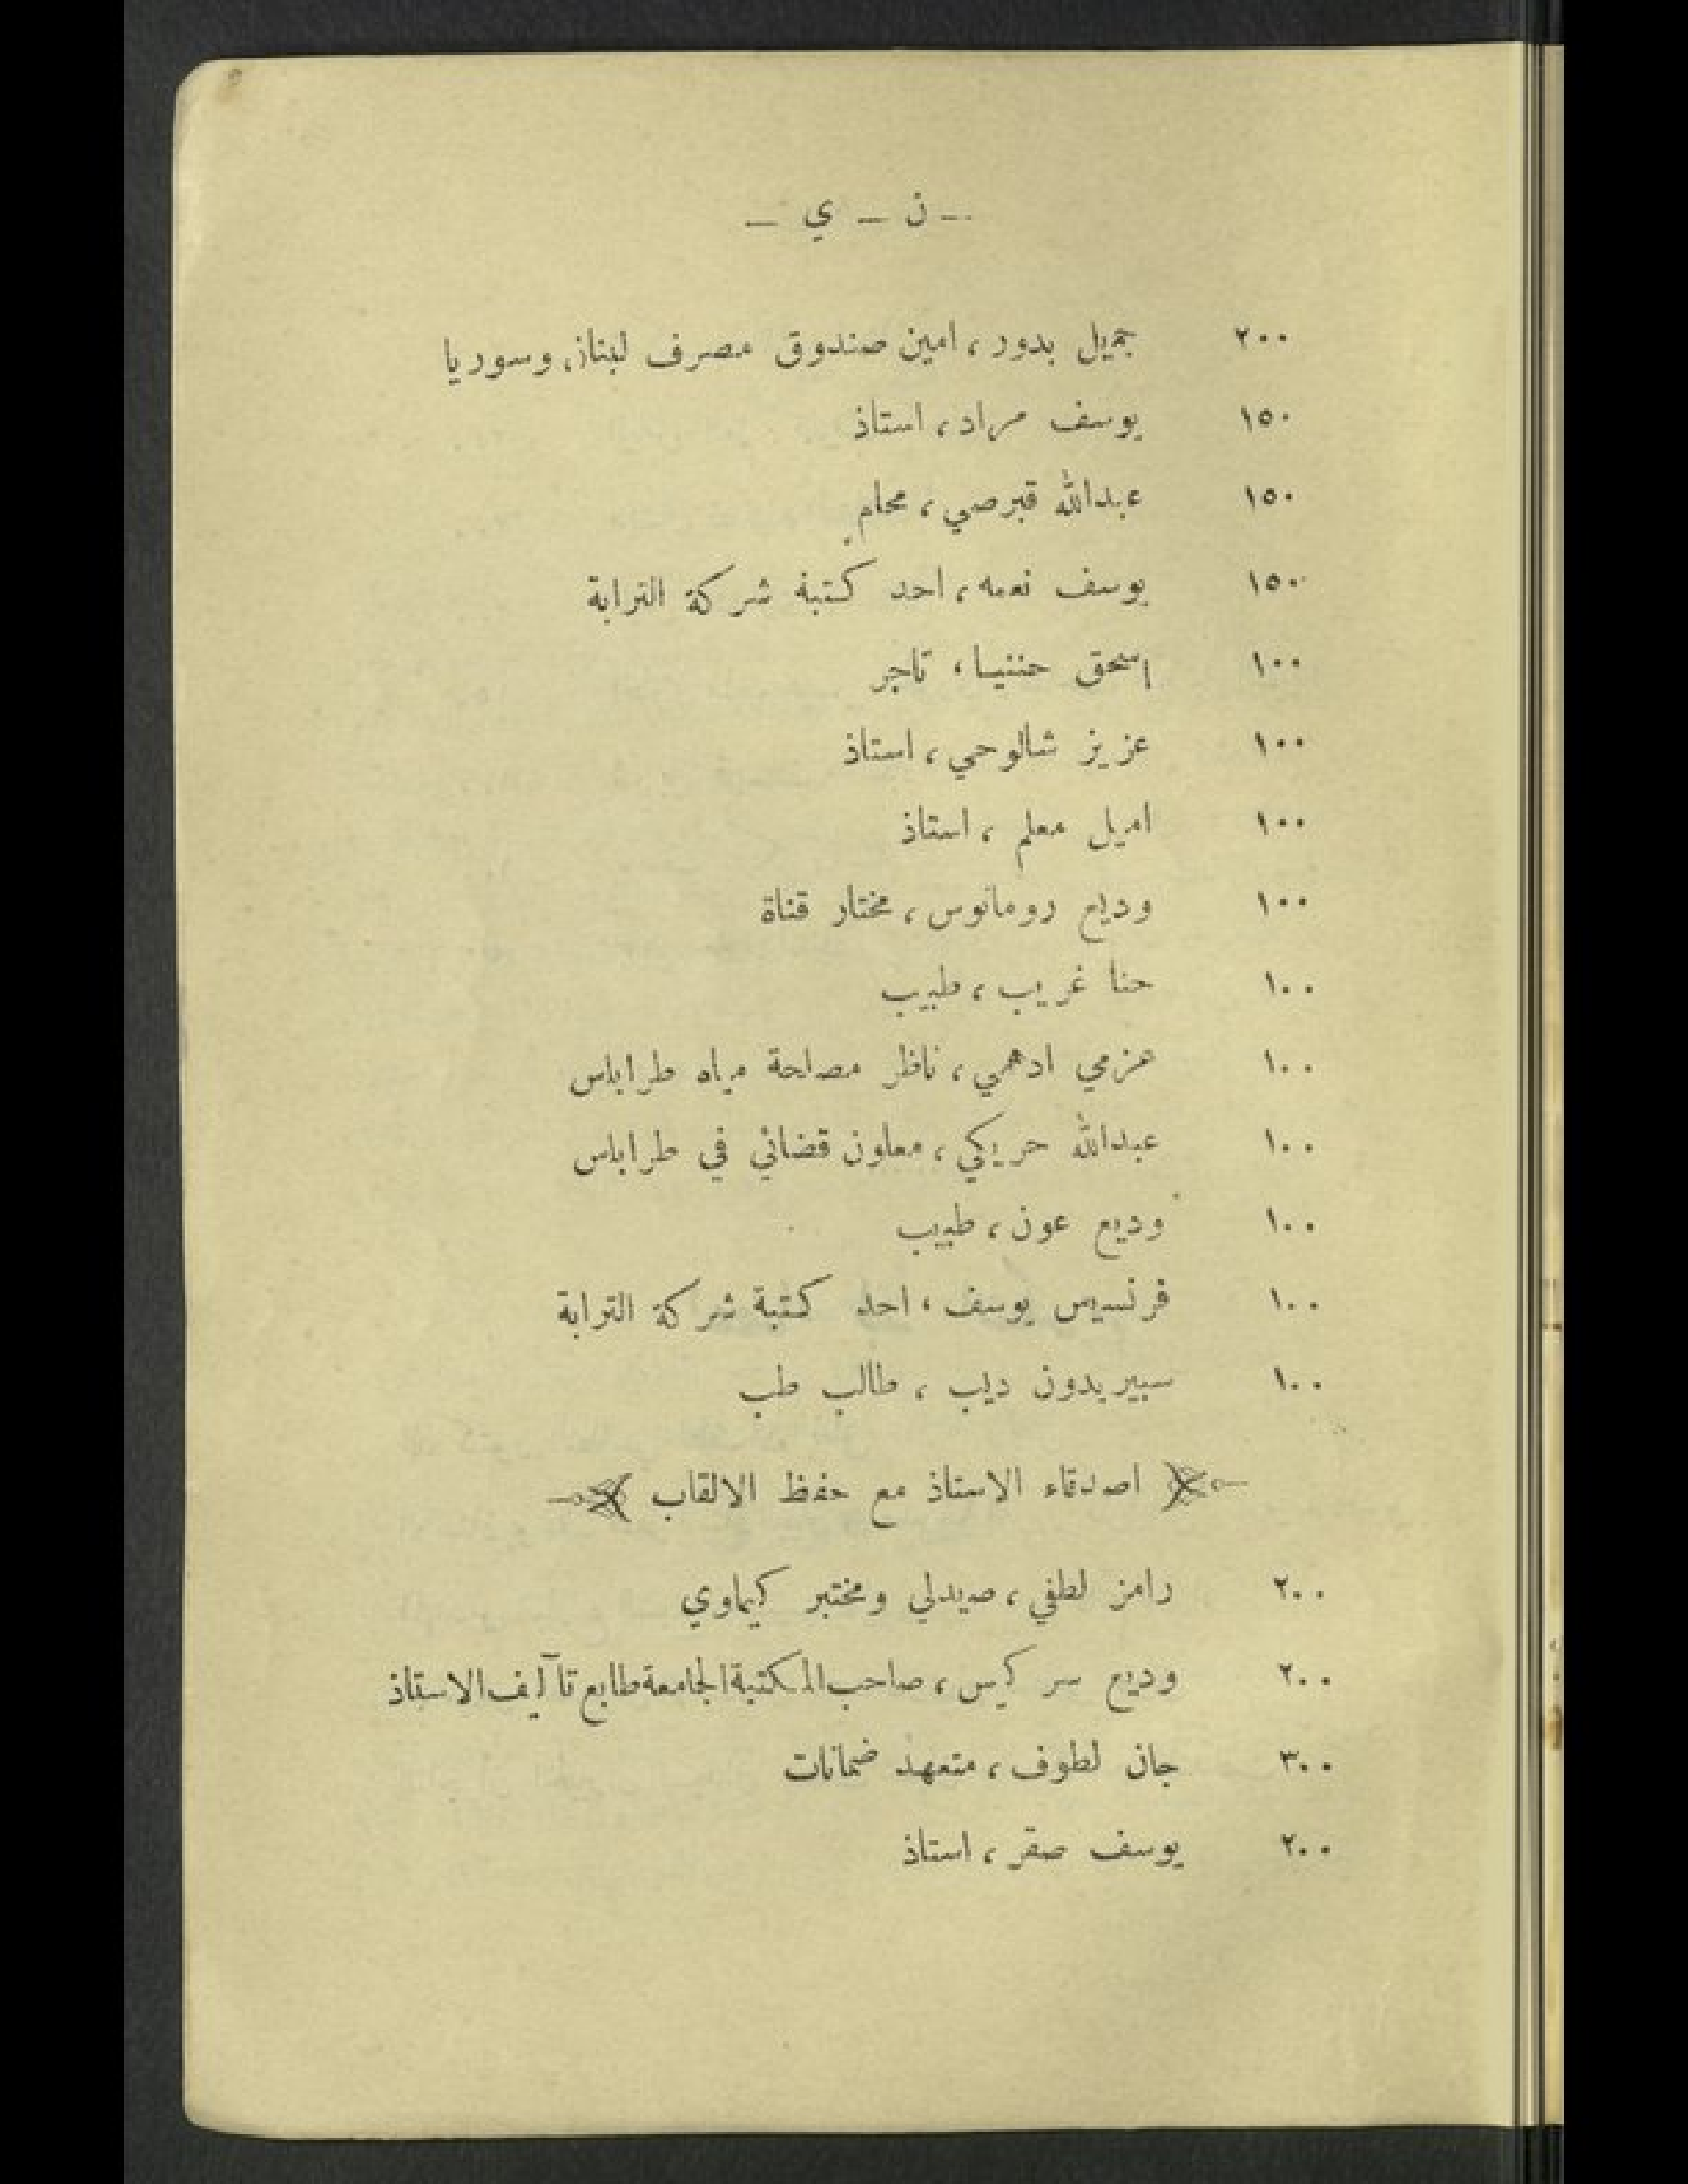 - ن - ي -
٢٠٠ جميل بدور ، امين صندوق مصرف لبنان وسوريا
١٥٠ يوسف مراد ، استاذ
١٥٠ عبدالله قبرصي ، محام
١٥٠ يوسف نعمه ، احد كتبة شركة الترابة
١٠٠ إسحق حننيا ، تاجر
١٠٠ عزيز شالوحي ، استاذ
١٠٠ اميل معلم ، استاذ
١٠٠ وديع رومانوس ، مختار قناة
١٠٠ حنا غريب ، طبيب
١٠٠ عزمي ادهمي ، ناظر مصلحة مياه طرابلس
١٠٠ عبدالله حريكي ، معاون قضائي في طرابلس
١٠٠ وديع عون ، طبيب
١٠٠ فرنسيس يوسف ، احد كتبة شركة الترابة
١٠٠ سبيريدون ديب ، طالب طب
اصدقاء الاستاذ مع حفظ الالقاب
٢٠٠ رامز لطفي ، صيدلي ومختبر كيماوي
٢٠٠ وديع سركيس ، صاحب المكتبة الجامعة طابع تآليف الاستاذ
٣٠٠ جان لطوف ، متعهد ضمانات
٢٠٠ يوسف صقر ، استاذ